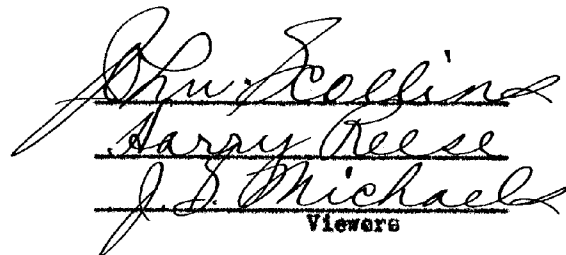 John Scollins
Harry Reese
J. D. Michaels
Viewers